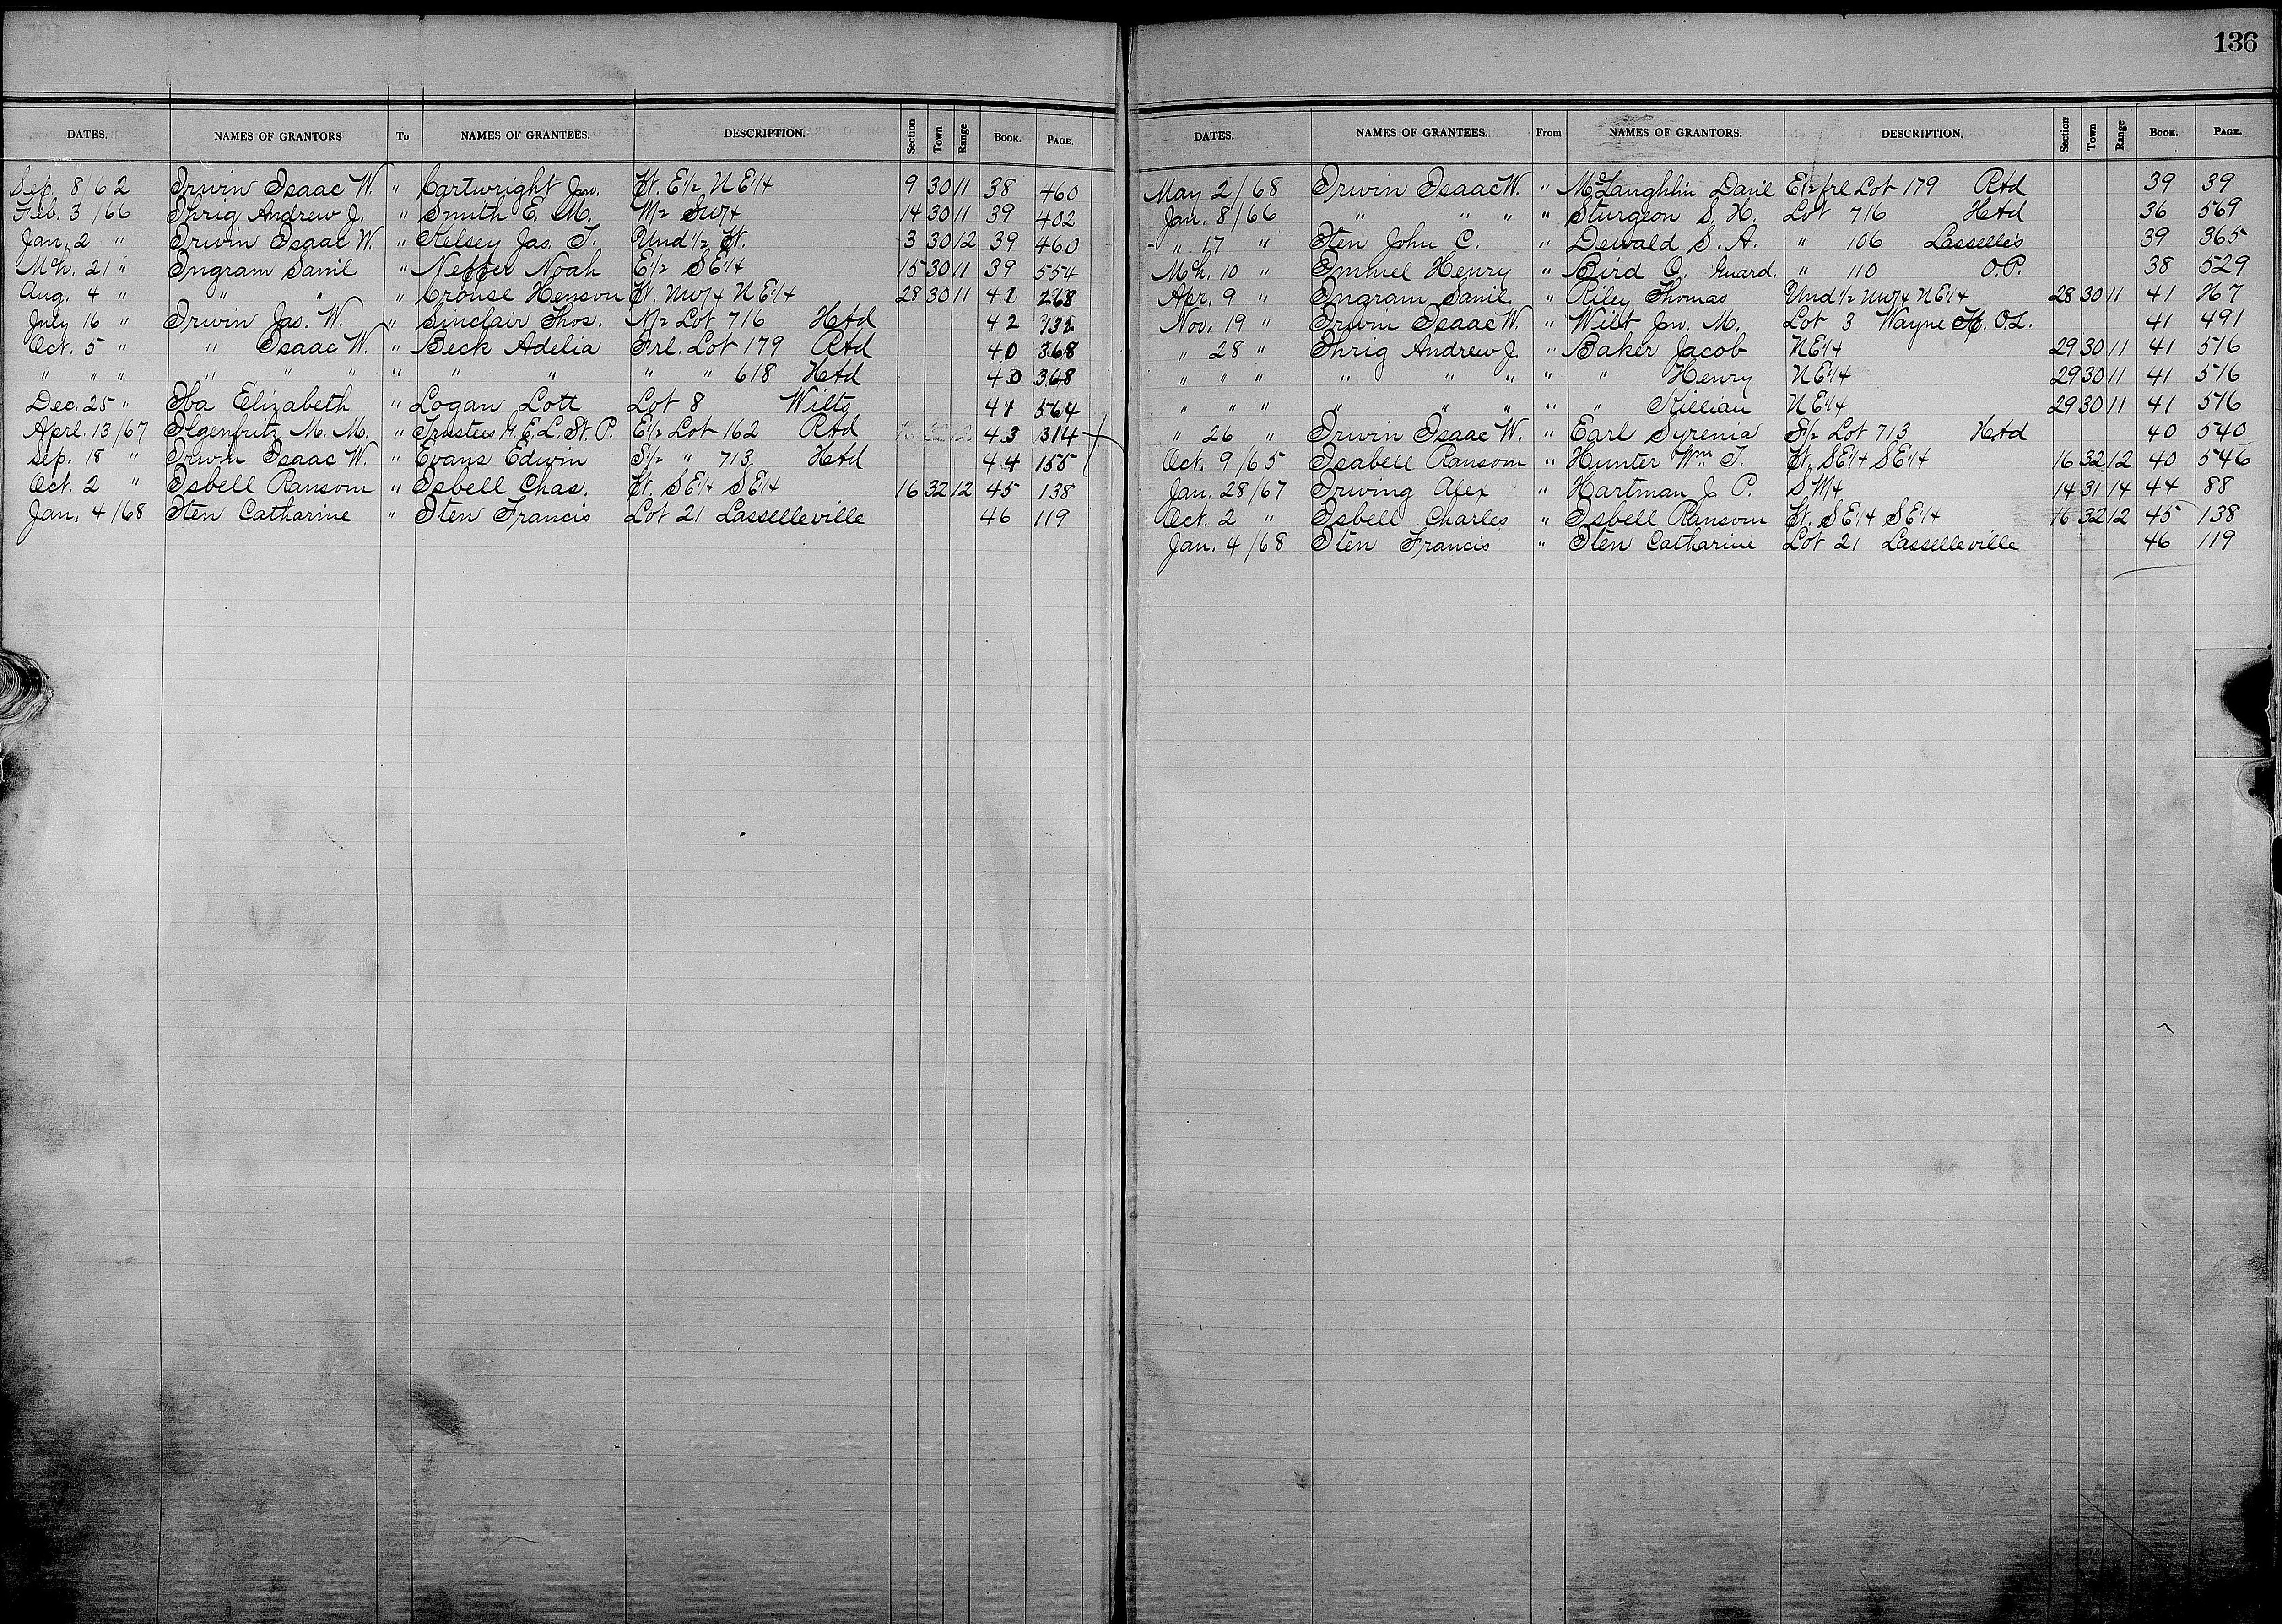 136
DATES. NAMES OF GRANTORS To NAMES OF GRANTEES. DESCRIPTION. Section Town Range BOOK. PAGE.
Sep. 8/62 Irwin Isaac W. " Cartwright Jno. Pt. E1/2 NE1/4 9 30 11 38 460
Feb. 3/66 Ihrig Andrew J. " Smith E. M. W1/2 SW1/4 14 30 11 39 402
Jan. 2 " Irwin Isaac W. " Kelsey Jas. T. Und 1/2 Pt. 3 30 12 39 460
Mch. 21 " Ingram Saml " Neffer Noah E1/2 SE1/4 15 30 11 39 554
Aug. 4 " " " " Crouse Henson Pt. NW1/4 NE1/4 28 30 11 41 268
July 16 " Irwin Jas. W. " Sinclair Thos. N1/2 Lot 716 HAd 42 132
Oct. 5 " " Isaac W. " Beck Adelia Frl. Lot 179 RAd 40 368
" " " " " " " " " " " 618 HAd 40 368
Dec. 25 " Iba Elizabeth " Logan Lott Lot 8 Wilts 41 564
Aprl. 13/67 Ilgenfritz M. M. " Trustees M. E. L. St. P. E1/2 Lot 162 RAd 43 314
Sep. 18 " Irwin Isaac W. " Evans Edwin S1/2 " 713 HAd 44 155
Oct. 2 " Isbell Ransom " Isbell Chas. Pt. SE1/4 SE1/4 16 32 12 45 138
Jan. 4/68 Iten Catharine " Iten Francis Lot 21 Lasselleville 46 119
DATES. NAMES OF GRANTEES. From NAMES OF GRANTORS. DESCRIPTION. Section Town Range BOOK. PAGE.
May 2/68 Irwin Isaac W. " McLaughlin Danl E1/2 frl Lot 179 RAd 39 39
Jan. 8/66 " " " " Sturgeon S. H. Lot 716 HAd 36 569
" 17 " Iten John C. " Dewald S. A. " 106 Lasselle's 39 365
Mch. 10 " Immel Henry " Bird O. Guard. " 110 O.P. 38 529
Apr. 9 " Ingram Saml. " Riley Thomas Und 1/2 NW1/4 NE1/4 28 30 11 41 267
Nov. 19 " Irwin Isaac W. " Wilt Jno. M. Lot 3 Wayne O.L. 41 491
" 28 " Ihrig Andrew J. " Baker Jacob NE1/4 29 30 11 41 516
" " " " " " " " Henry NE1/4 29 30 11 41 516
" " " " " " " " Killian NE1/4 29 30 11 41 516
" 26 " Irwin Isaac W. " Earl Syrenia S1/2 Lot 713 HAd 40 540
Oct. 9/65 Isabell Ransom " Hunter Wm T. Pt. SE1/4 SE1/4 16 32 12 40 546
Jan. 28/67 Irwing Alex " Hartman J. P. SW1/4 14 31 14 44 88
Oct. 2 " Isbell Charles " Isbell Ransom Pt. SE1/4 SE1/4 16 32 12 45 138
Jan. 4/68 Iten Francis " Iten Catharine Lot 21 Lasselleville 46 119